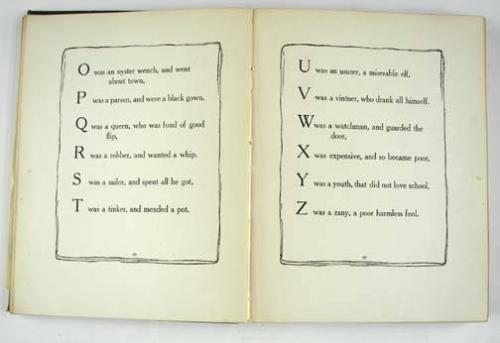 O was an oyster wench, and went
about town,
P was a parson, and wore a black gown.
Q was a queen, who was fond of good
flip,
R was a robber, and wanted a whip.
S was a sailor, and spent all he got,
T was a tinker, and mended a pot.
U was an usurer, a miserable elf,
V was a vintner, who drank all himself.
W was a watchman, and guarded the
door,
X was expensive, and so became poor,
Y was a youth, that did not love school,
Z was a zany, a poor harmless fool.